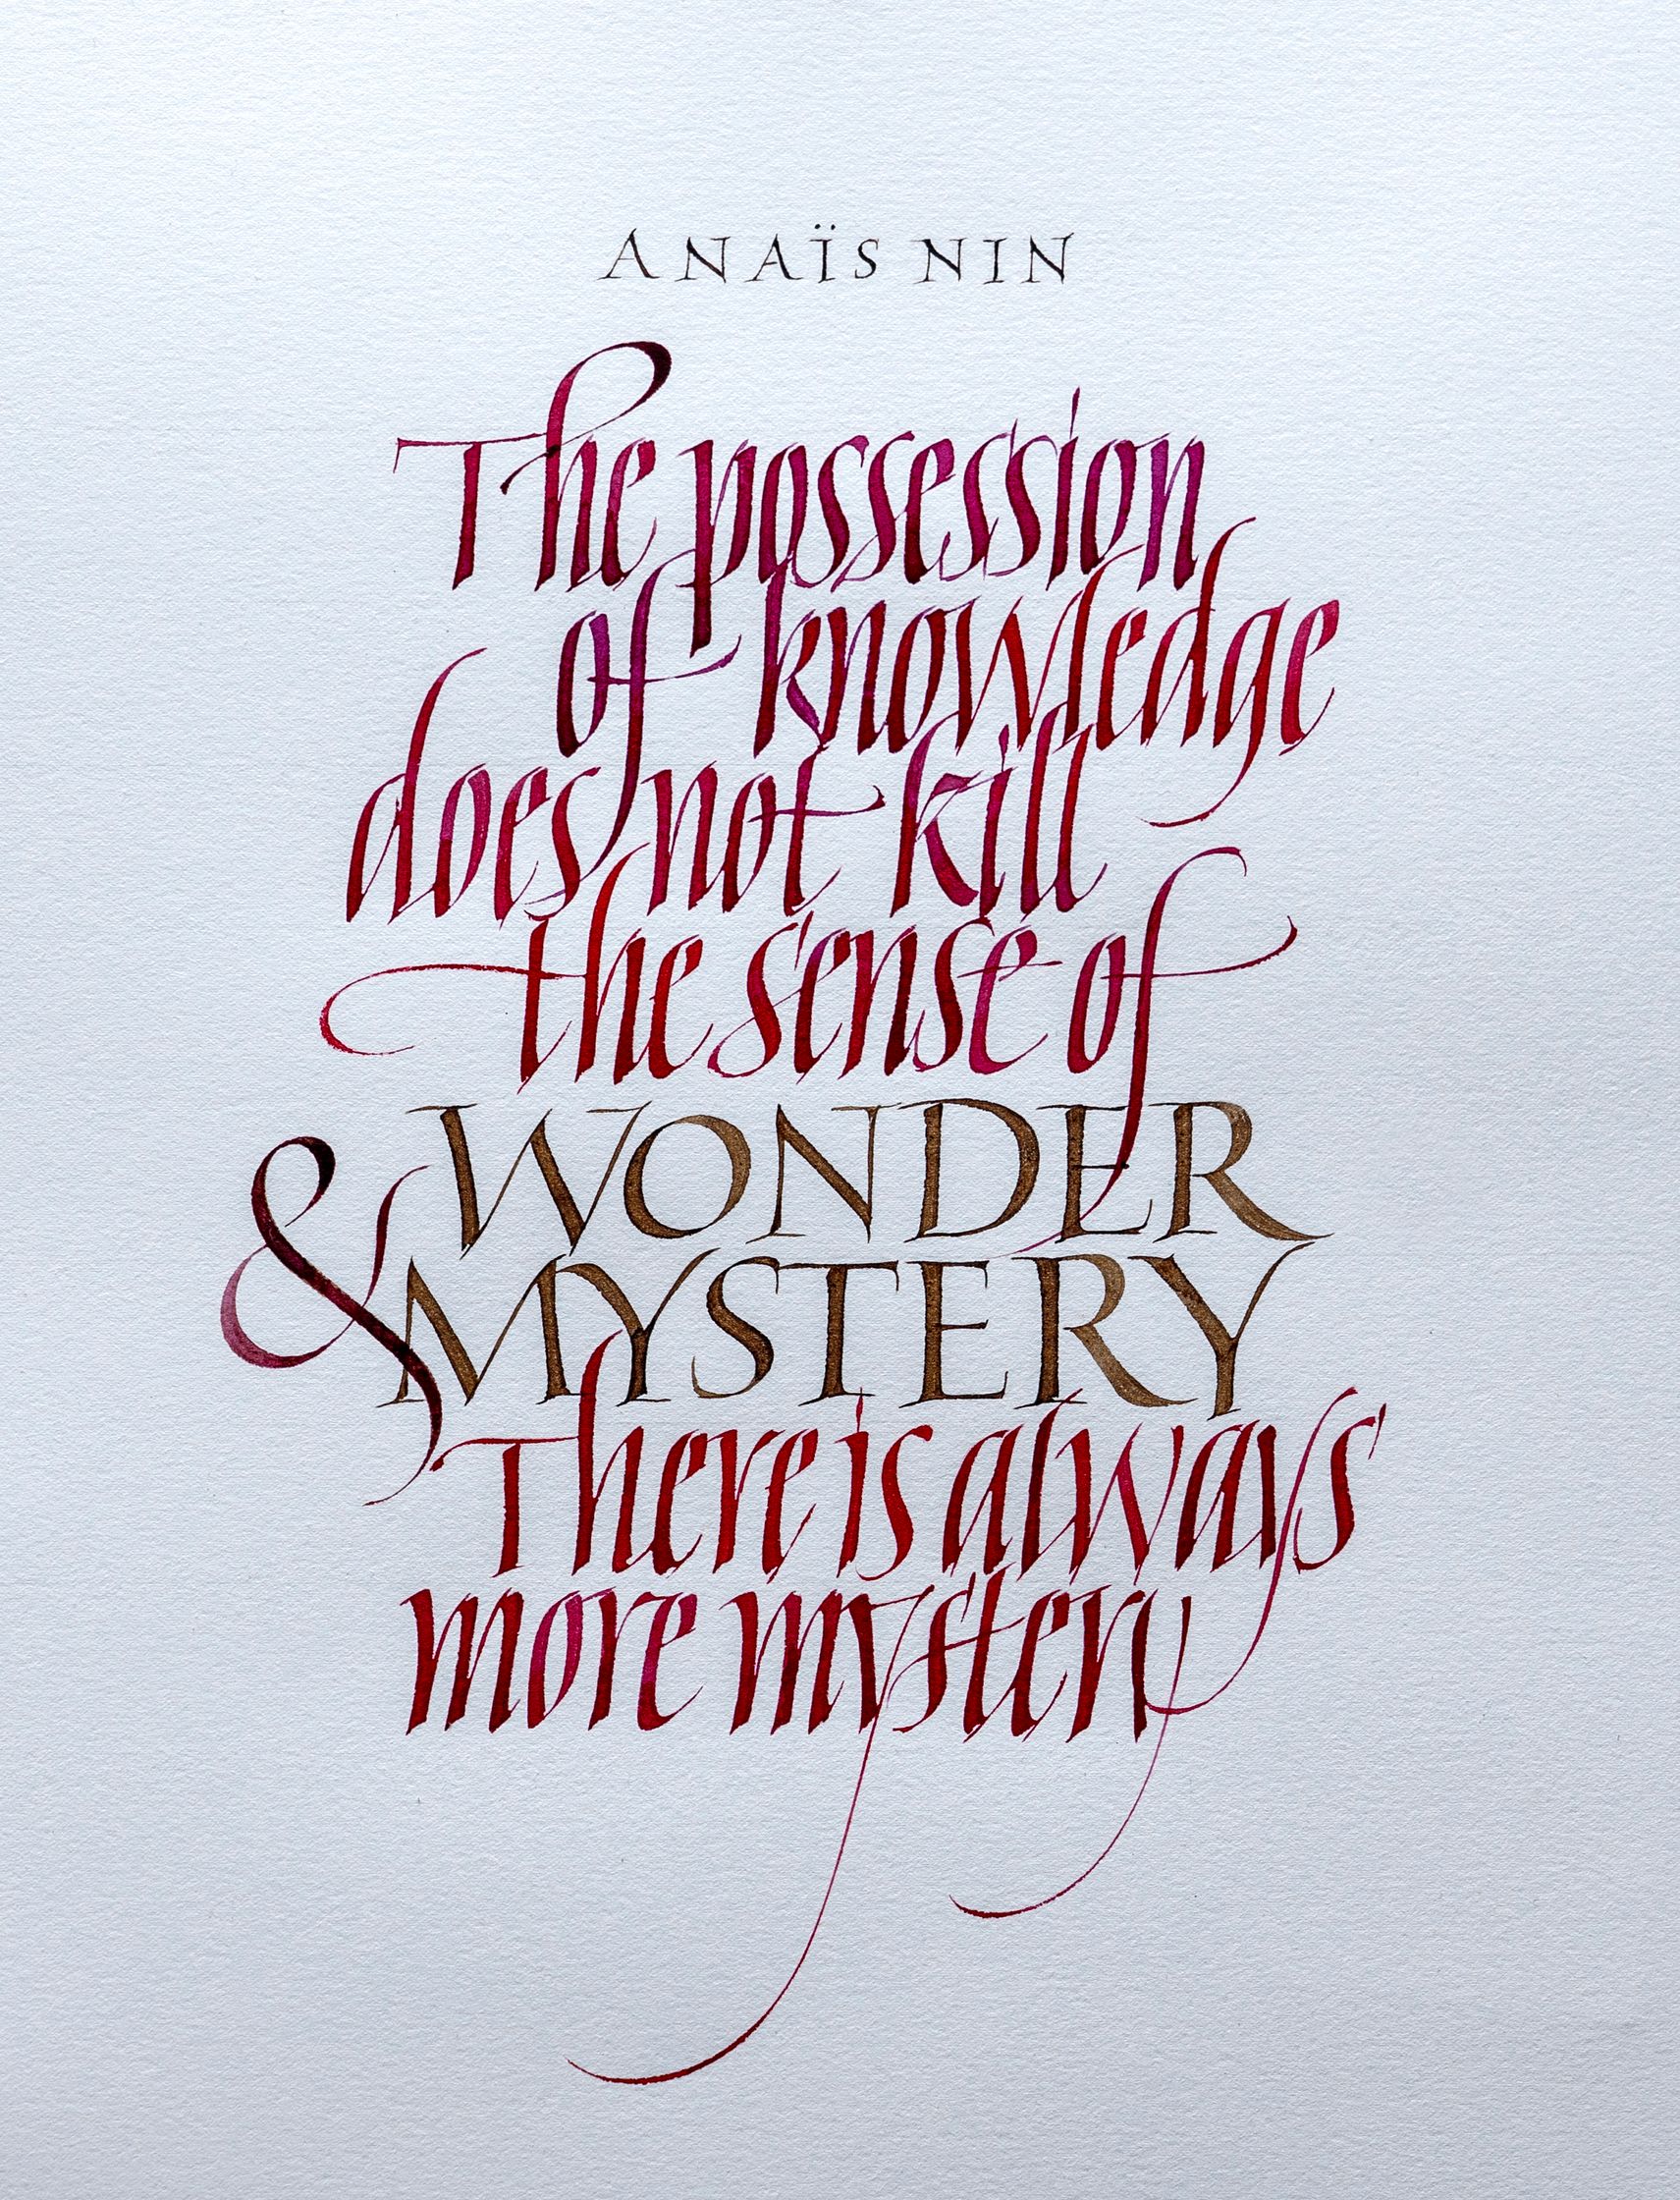 ANAÏS NIN
The possession
of knowledge
does not kill
the sense of
WONDER
& MYSTERY
There is always
more mystery